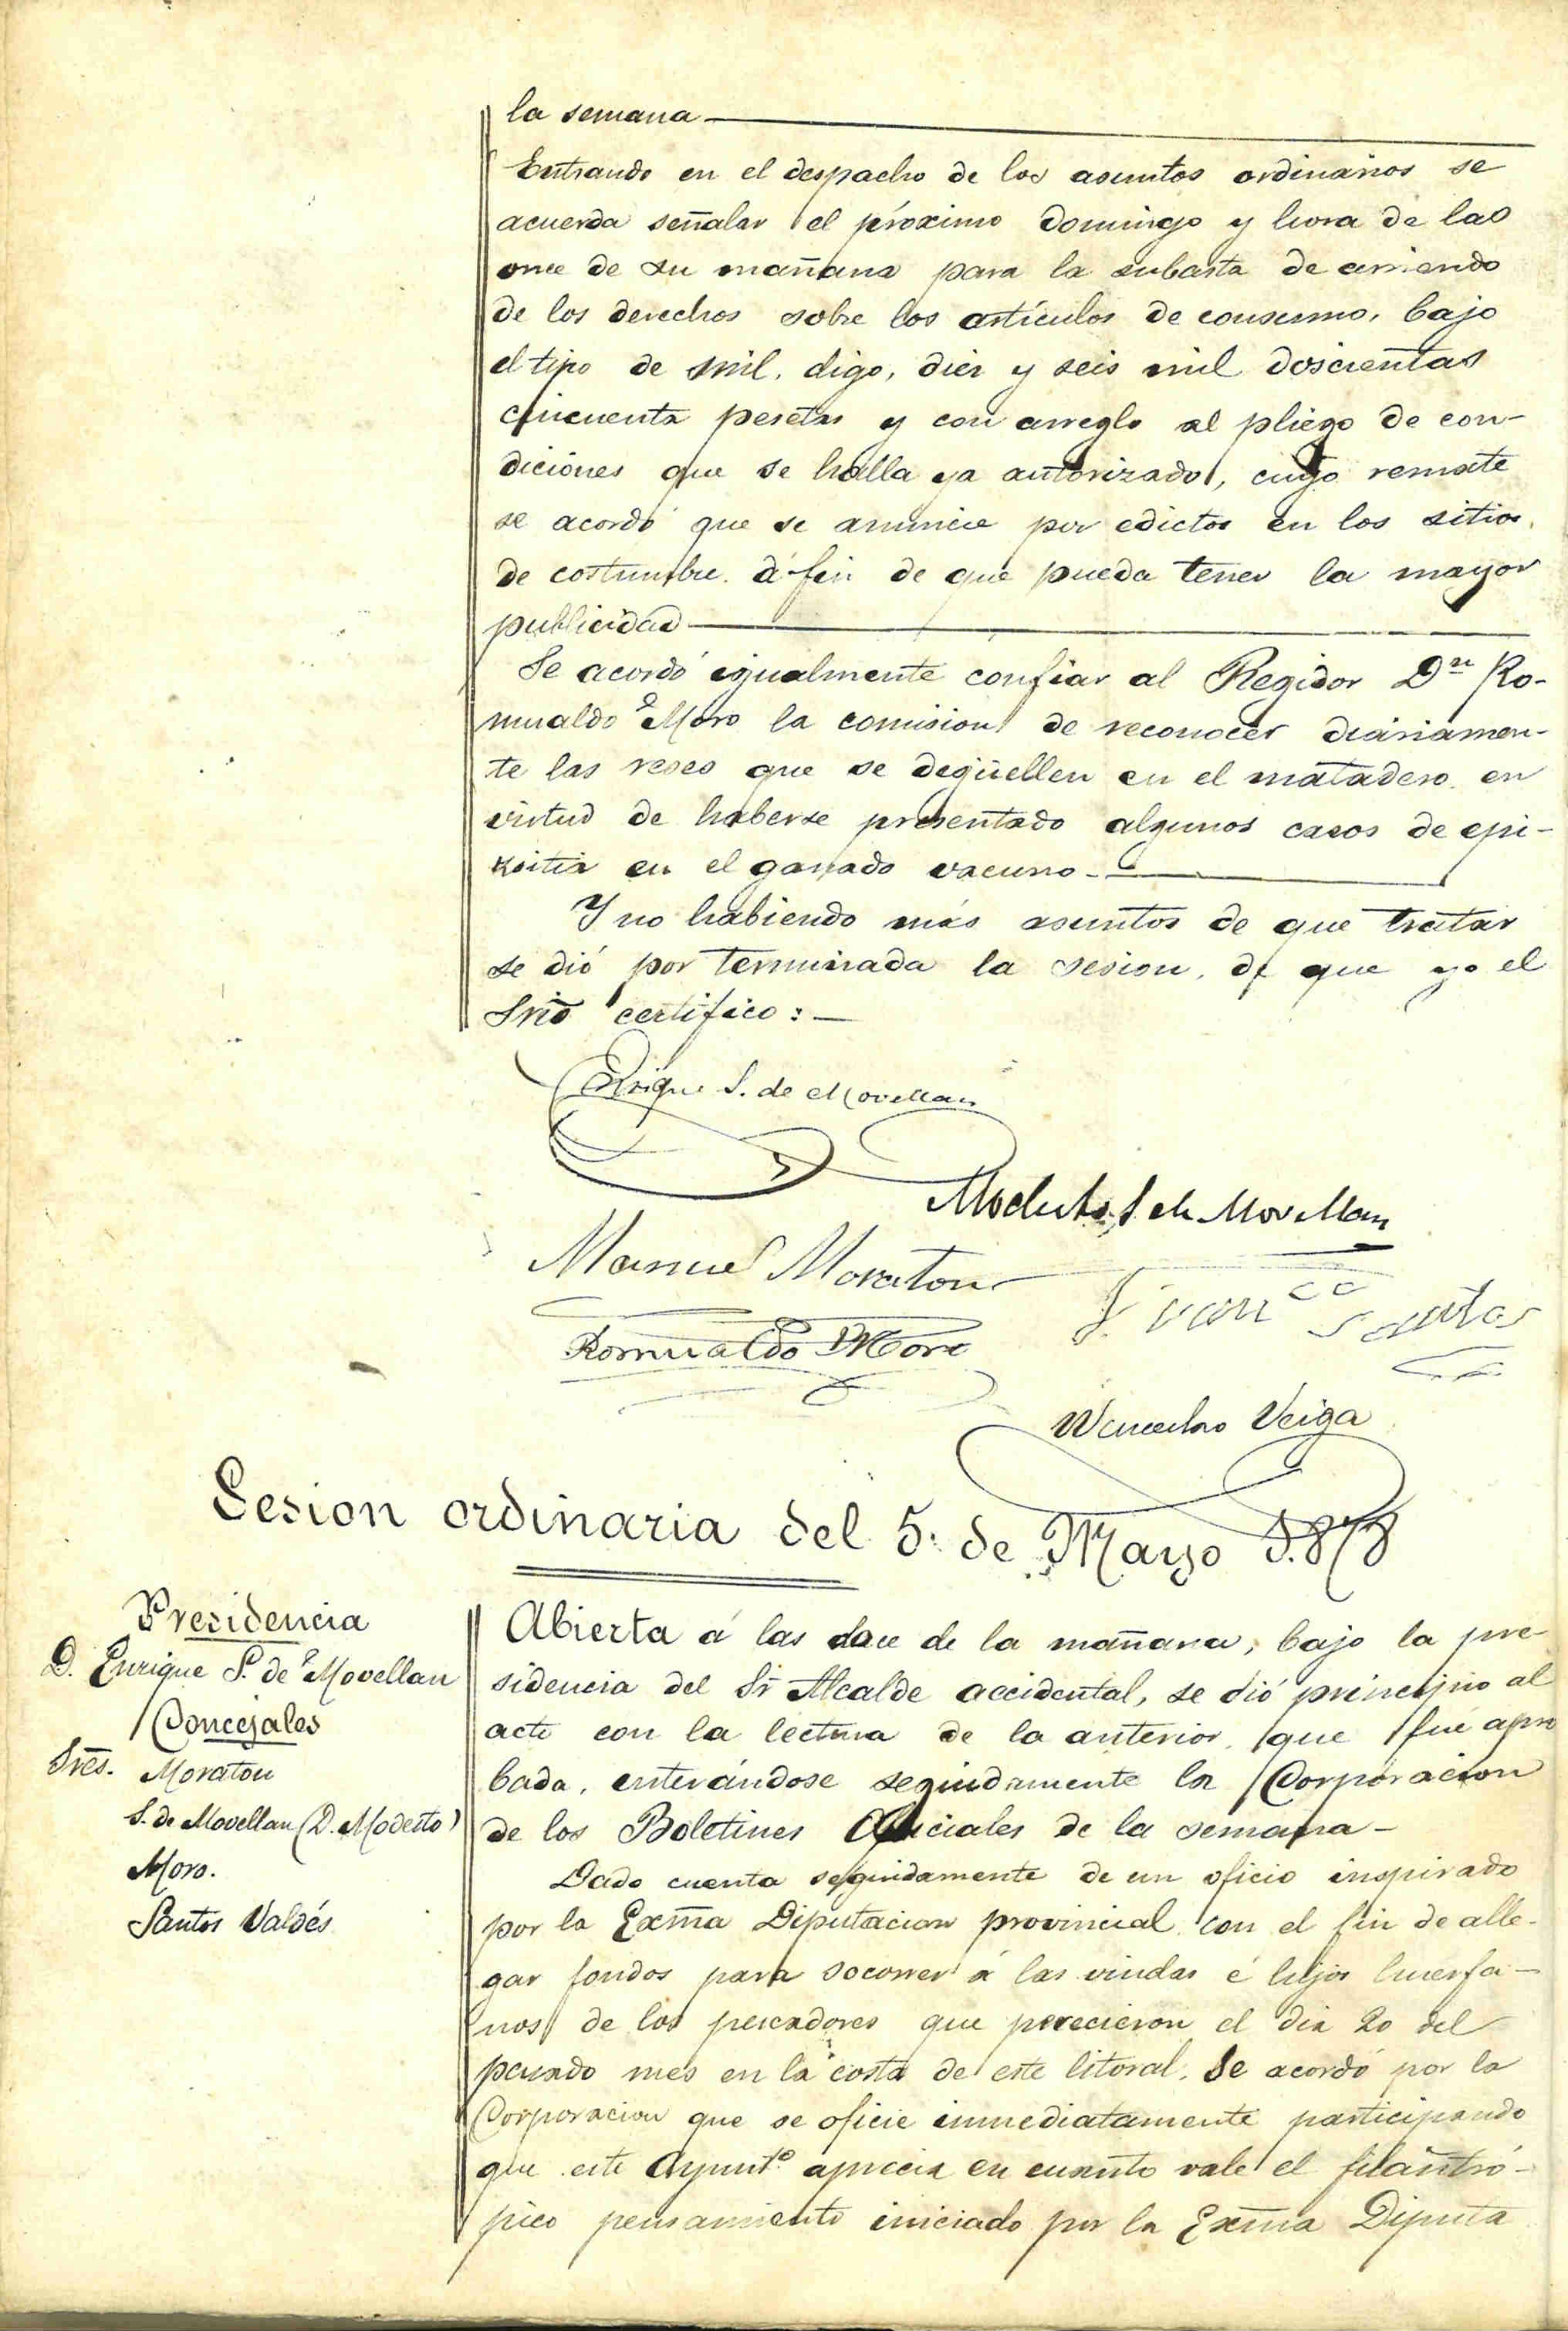 la semana
Entrando en el despacho de los asuntos ordinarios se
acuerda señalar el próximo domingo y hora de las
once de su mañana para la subasta de arriendo
de los derechos sobre los artículos de consumo, bajo
el tipo de mil, digo, diez y seis mil doscientas
cincuenta pesetas y con arreglo al pliego de con-
diciones que se halla ya autorizado, cuyo remate
se acordó que se anuncie por edictos en los sitios
de costumbre á fin de que pueda tener la mayor
publicidad
Se acordó igualmente confiar al Regidor Dn Ro-
mualdo Moro la comision de reconocer diariamen-
te las reses que se degüellen en el matadero en
virtud de haberse presentado algunos casos de epi-
zoitia en el ganado vacuno.
Y no habiendo más asuntos de que tratar
se dió por terminada la sesion, de que yo el
Srio certifico:
Enrique S. de Movellan
Modesto S de Movellan
Manuel Moraton
Franco Santos
Romualdo Moro
Wenceslao Veiga
Sesion ordinaria del 5. de Mayo 1.878
Presidencia
D. Enrique S. de Movellan
Concejales
Sres. Moraton
S. de Movellan (D. Modesto)
Moro.
Santos Valdés
Abierta á las doce de la mañana, bajo la pre-
sidencia del Sr Alcalde accidental, se dió principio al
acto con la lectura de la anterior, que fué apro
bada, enterándose seguidamente la Corporacion
de los Boletines Oficiales de la semana
Dado cuenta seguidamente de un oficio inspirado
por la Exma Diputacion provincial con el fin de alle-
gar fondos para socorrer á las viudas é hijos huerfa-
nos de los pescadores que perecieron el dia 20 del
pasado mes en la costa de este litoral. Se acordó por la
Corporacion que se oficie inmediatamente participando
que este Ayuntº aprecia en cuanto vale el filantró-
pico pensamiento iniciado por la Exma Diputa